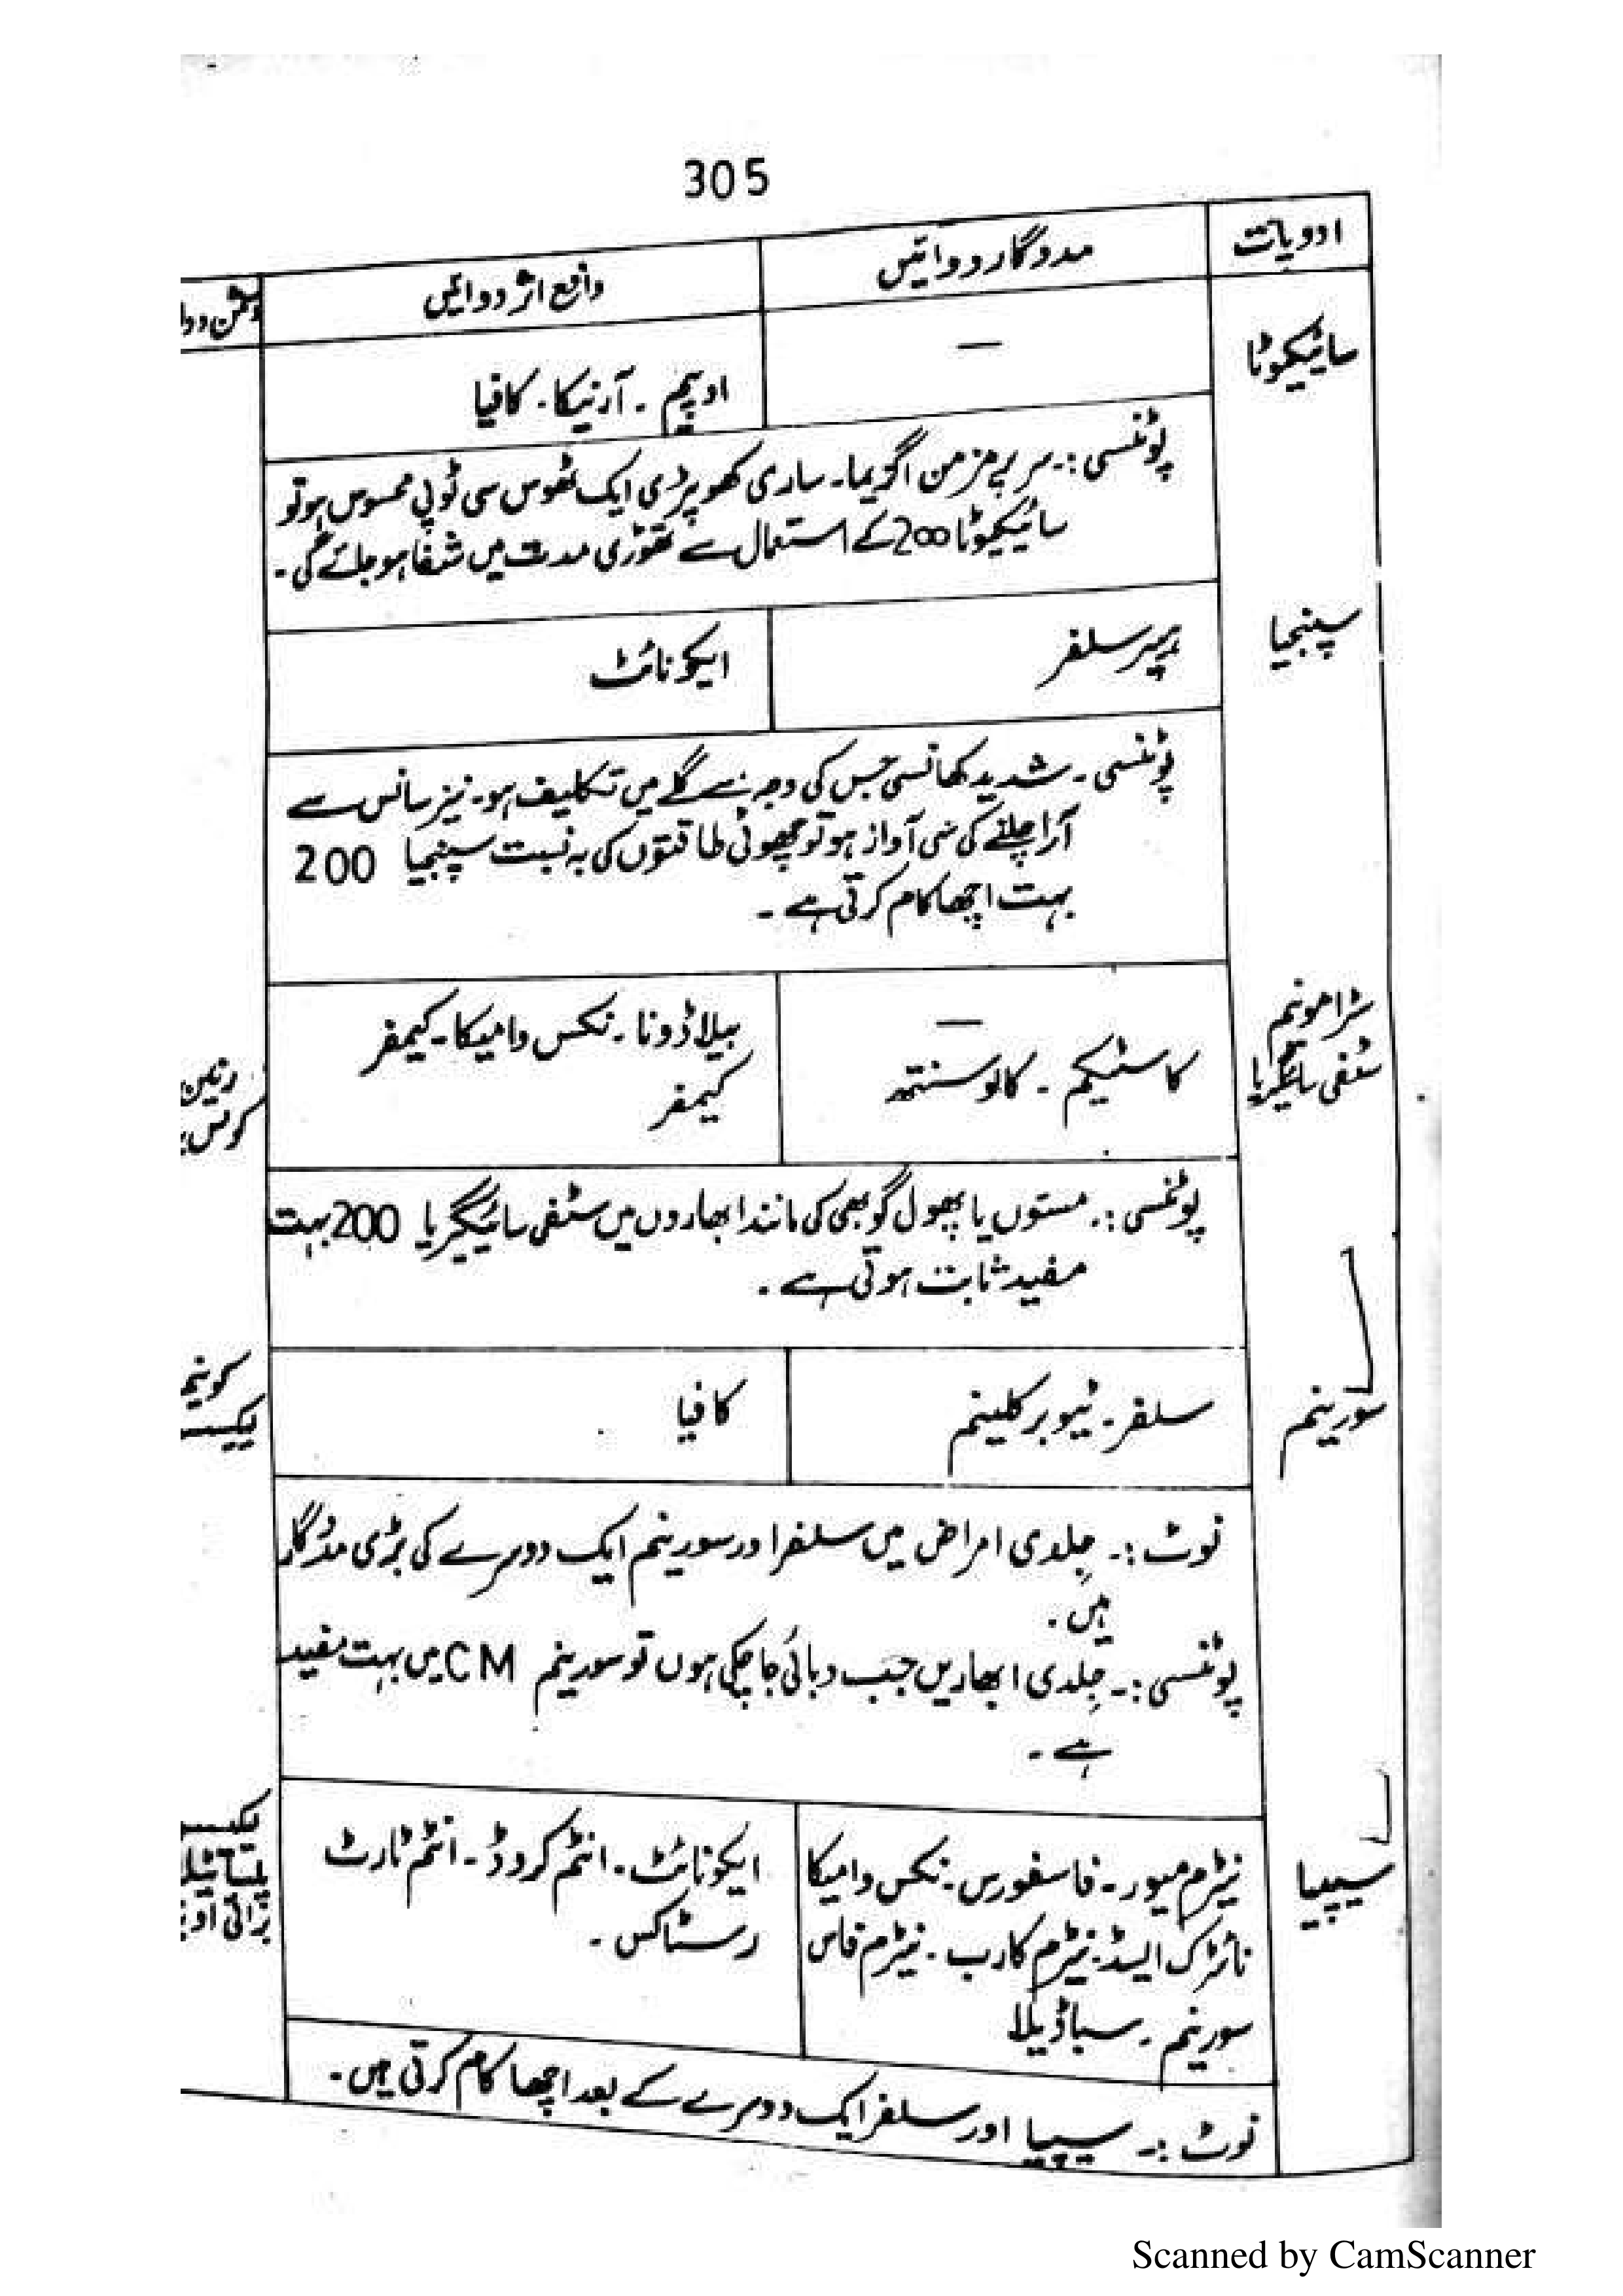 305
ادویات مددگار دوائیں دافع اثر دوائیں دشمن
سائیکوٹا — اوپیم ۔ آرنیکا ۔ کافیا
پوٹنسی :۔ سر پر مزمن اگزیما ۔ ساری کھوپڑی ایک ٹھوس سی ٹوپی محسوس ہو تو
سائیکیوٹا 200 کے استعمال سے تھوڑی مدت میں شفا ہو جائے گی ۔
سپنجیا ہیپر سلفر ایکونائٹ
پوٹنسی ۔ شدید کھانسی جس کی وجہ سے گلے میں تکلیف ہو ۔ نیز سانس سے
آرا چلنے کی سی آواز ہو تو چھوٹی طاقتوں کی بہ نسبت سپنجیا 200
بہت اچھا کام کرتی ہے ۔
سٹرامونیم — بیلاڈونا ۔ نکس وامیکا ۔ کیمفر
سٹفی سائیگریا کاسٹیکم ۔ کالوسنتھ کیمفر
پوٹنسی :۔ مستوں یا پھول گوبھی کی مانند ابھاروں میں سٹفی سائیگیریا 200 بہت
مفید ثابت ہوتی ہے ۔
سورینم سلفر ۔ ٹیوبرکلینم کافیا کونیم
نوٹ :۔ جِلدی امراض میں سلفر اور سورینم ایک دوسرے کی بڑی مددگار
ہیں ۔
پوٹنسی :۔ جِلدی ابھاریں جب دبائی جا چکی ہوں تو سورینم CM میں بہت مفید
ہے ۔
سیپیا نیٹرم میور ۔ فاسفورس ۔ نکس وامیکا ایکونائٹ ۔ انٹم کروڈ ۔ انٹم ٹارٹ
نائٹرک ایسڈ ۔ نیٹرم کارب ۔ نیٹرم فاس رسٹاکس ۔
سورینم ۔ سباڈیلا
نوٹ :۔ سیپیا اور سلفر ایک دوسرے کے بعد اچھا کام کرتی ہیں ۔
Scanned by CamScanner